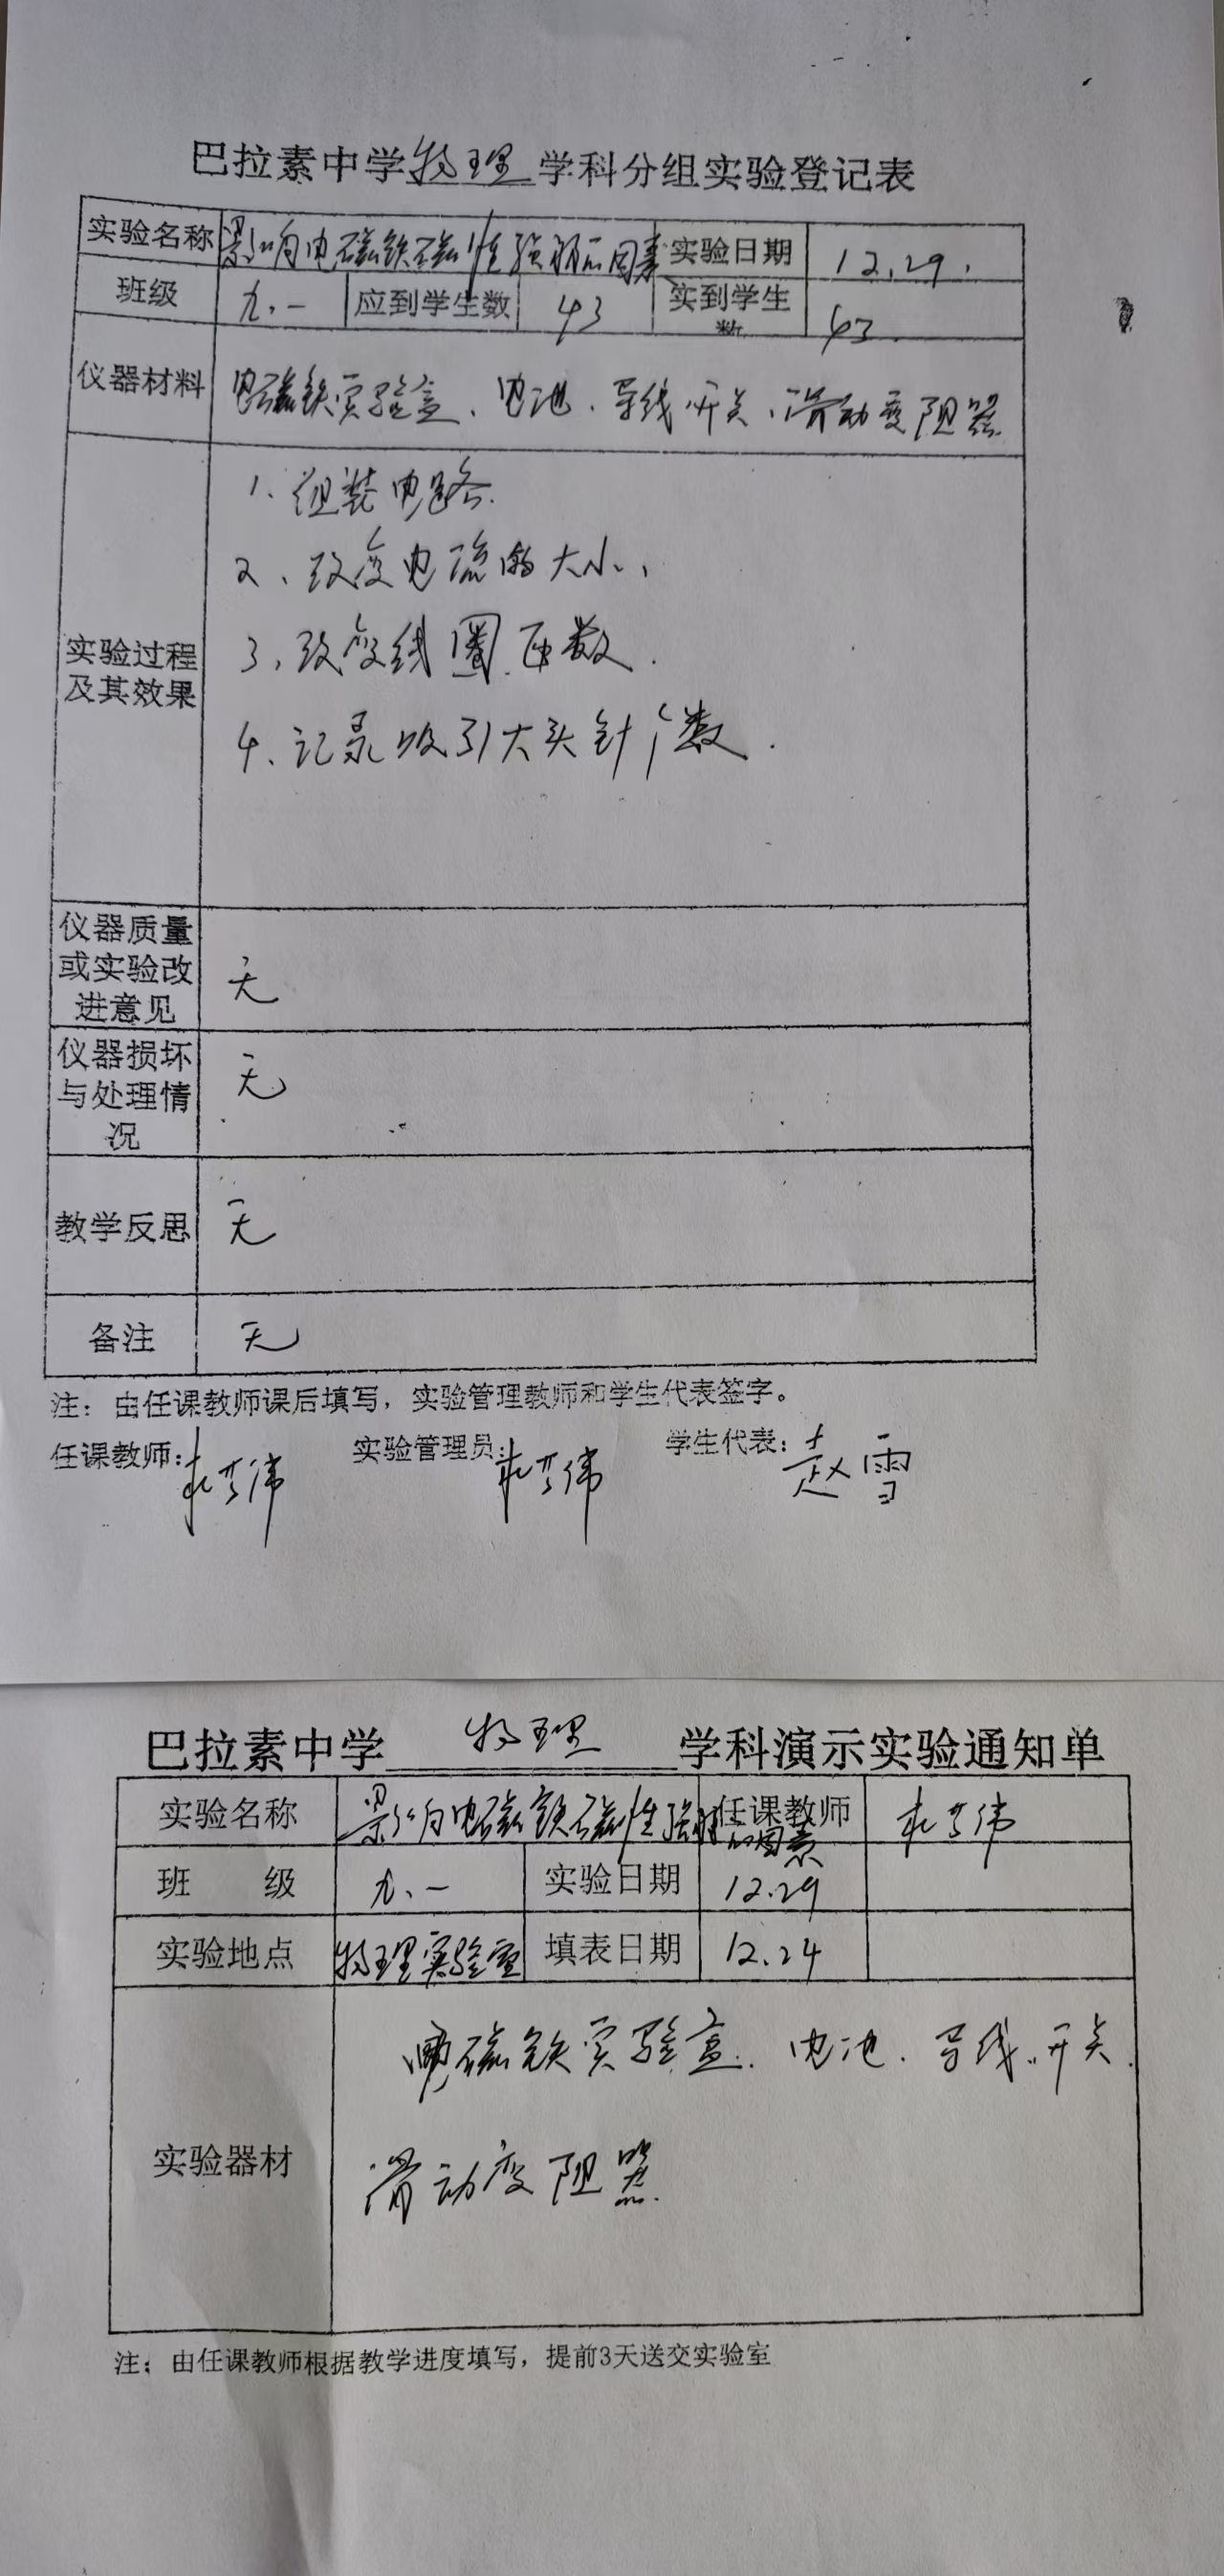 巴拉素中学物理学科分组实验登记表
实验名称 影响电磁铁磁性强弱的因素 实验日期 12.29.
班级 九.一 应到学生数 43 实到学生数 43
仪器材料 电磁铁实验盒、电池、导线、开关、滑动变阻器
实验过程及其效果
1、组装电路.
2、改变电流的大小、
3、改变线圈匝数.
4、记录吸引大头针个数.
仪器质量或实验改进意见 无
仪器损坏与处理情况 无
教学反思 无
备注 无
注：由任课教师课后填写，实验管理教师和学生代表签字。
任课教师： 实验管理员： 学生代表：赵雪
巴拉素中学 物理 学科演示实验通知单
实验名称 影响电磁铁磁性强弱的因素 任课教师
班 级 九.一 实验日期 12.29
实验地点 物理实验室 填表日期 12.24
实验器材
电磁铁实验盒. 电池. 导线. 开关.
滑动变阻器.
注：由任课教师根据教学进度填写，提前3天送交实验室